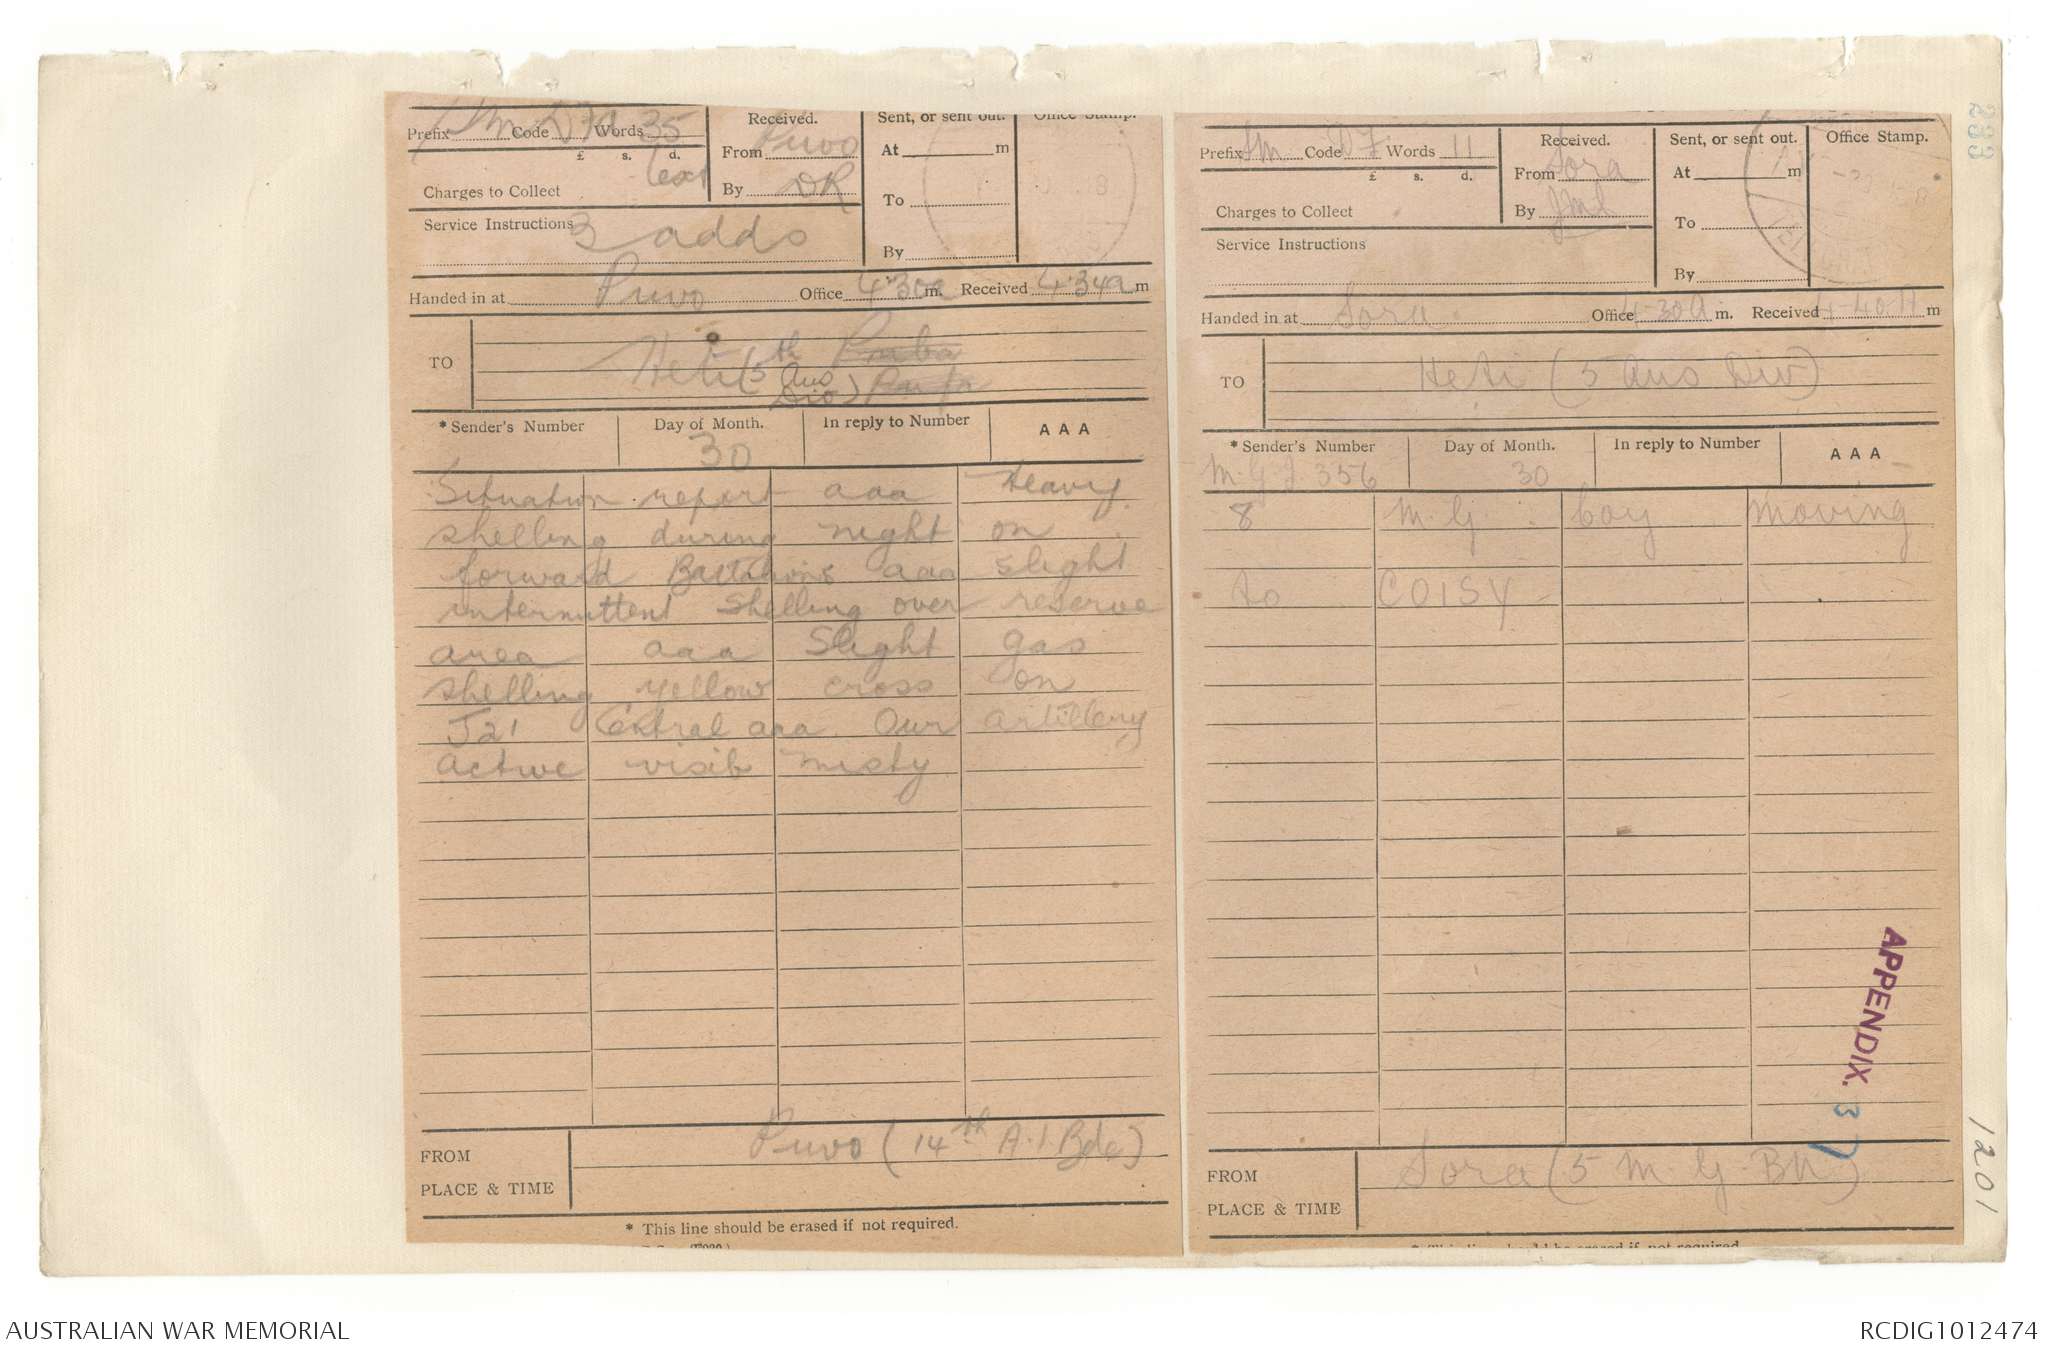 Prefix Sm Code Words 35
£ s. d.
Charges to Collect
Received.
From Puvo
By DR
Sent, or sent out.
At m
To
By
Office Stamp.
Service Instructions 3 adds
Handed in at Puvo Office 4.30a m. Received 4.34a m
TO Heti (5th Aus Div)
* Sender's Number Day of Month. In reply to Number AAA
30
Situation report aaa Heavy
shelling during night on
forward Battalions aaa slight
intermittent shelling over reserve
area aaa Slight gas
shelling yellow cross on
J21 Central aaa Our artillery
active visib misty
FROM Puvo (14th A.I.Bde)
PLACE & TIME
* This line should be erased if not required.
Prefix Sm Code DF Words 11
£ s. d.
Charges to Collect
Received.
From Sora
By
Sent, or sent out.
At m
To
By
Office Stamp.
Service Instructions
Handed in at Sora. Office 4-30A m. Received 4-40A m
TO Heti (5 Aus Div)
* Sender's Number Day of Month. In reply to Number AAA
M.G.J. 356 30
8 M.G. coy moving
to COISY -
FROM Sora (5 M G. BN)
PLACE & TIME
* This line should be erased if not required
APPENDIX. 37
233
1201
AUSTRALIAN WAR MEMORIAL
RCDIG1012474